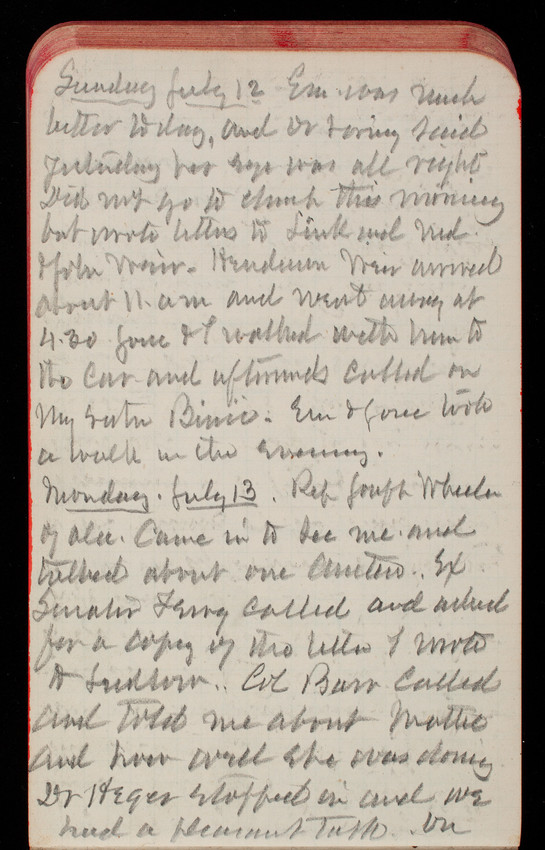 Sunday July 12 Em was much
better today, and Dr Loring said
yesterday her eye was all right
Did not go to church this morning
but wrote letters to Link and Ned
& John Weir. Henderson Weir arrived
about 11 a m and went away at
4.30 June & I walked with him to
the Car and afterwards called on
My sister Binie. Em & June took
a walk in the evening.
Monday. July 13. Rep Joseph Wheeler
of Ala. Came in to see me and
talked about one. Ex
Senator Ferry called and asked
for a copy of the letter I wrote
to Ludlow.. Col Barr Called
and told me about Mattie
and how well she was doing
Dr Heger stopped in and we
had a pleasant talk. On